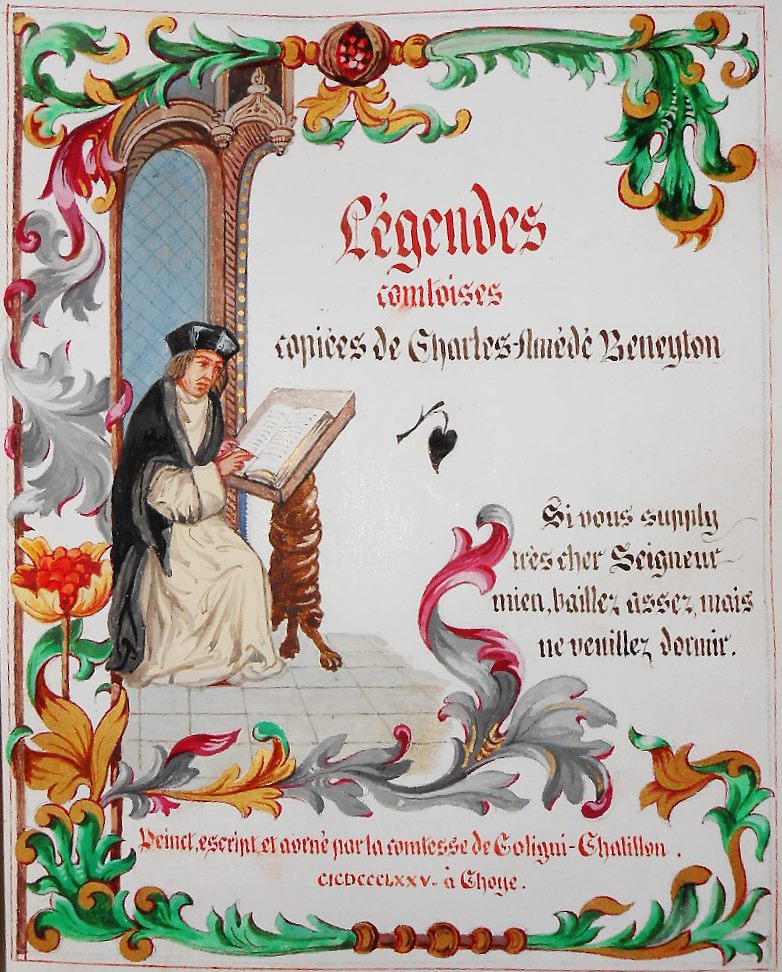 Légendes
comtoises
copiées de Charles-Amédé Beneyton
Si vous supply
très cher Seigneur
mien, baillez assez, mais
ne veuillez dormir.
Peinct, escript et aorné par la comtesse de Coligni-Chatillon.
CICDCCCLXXV - à Choye.